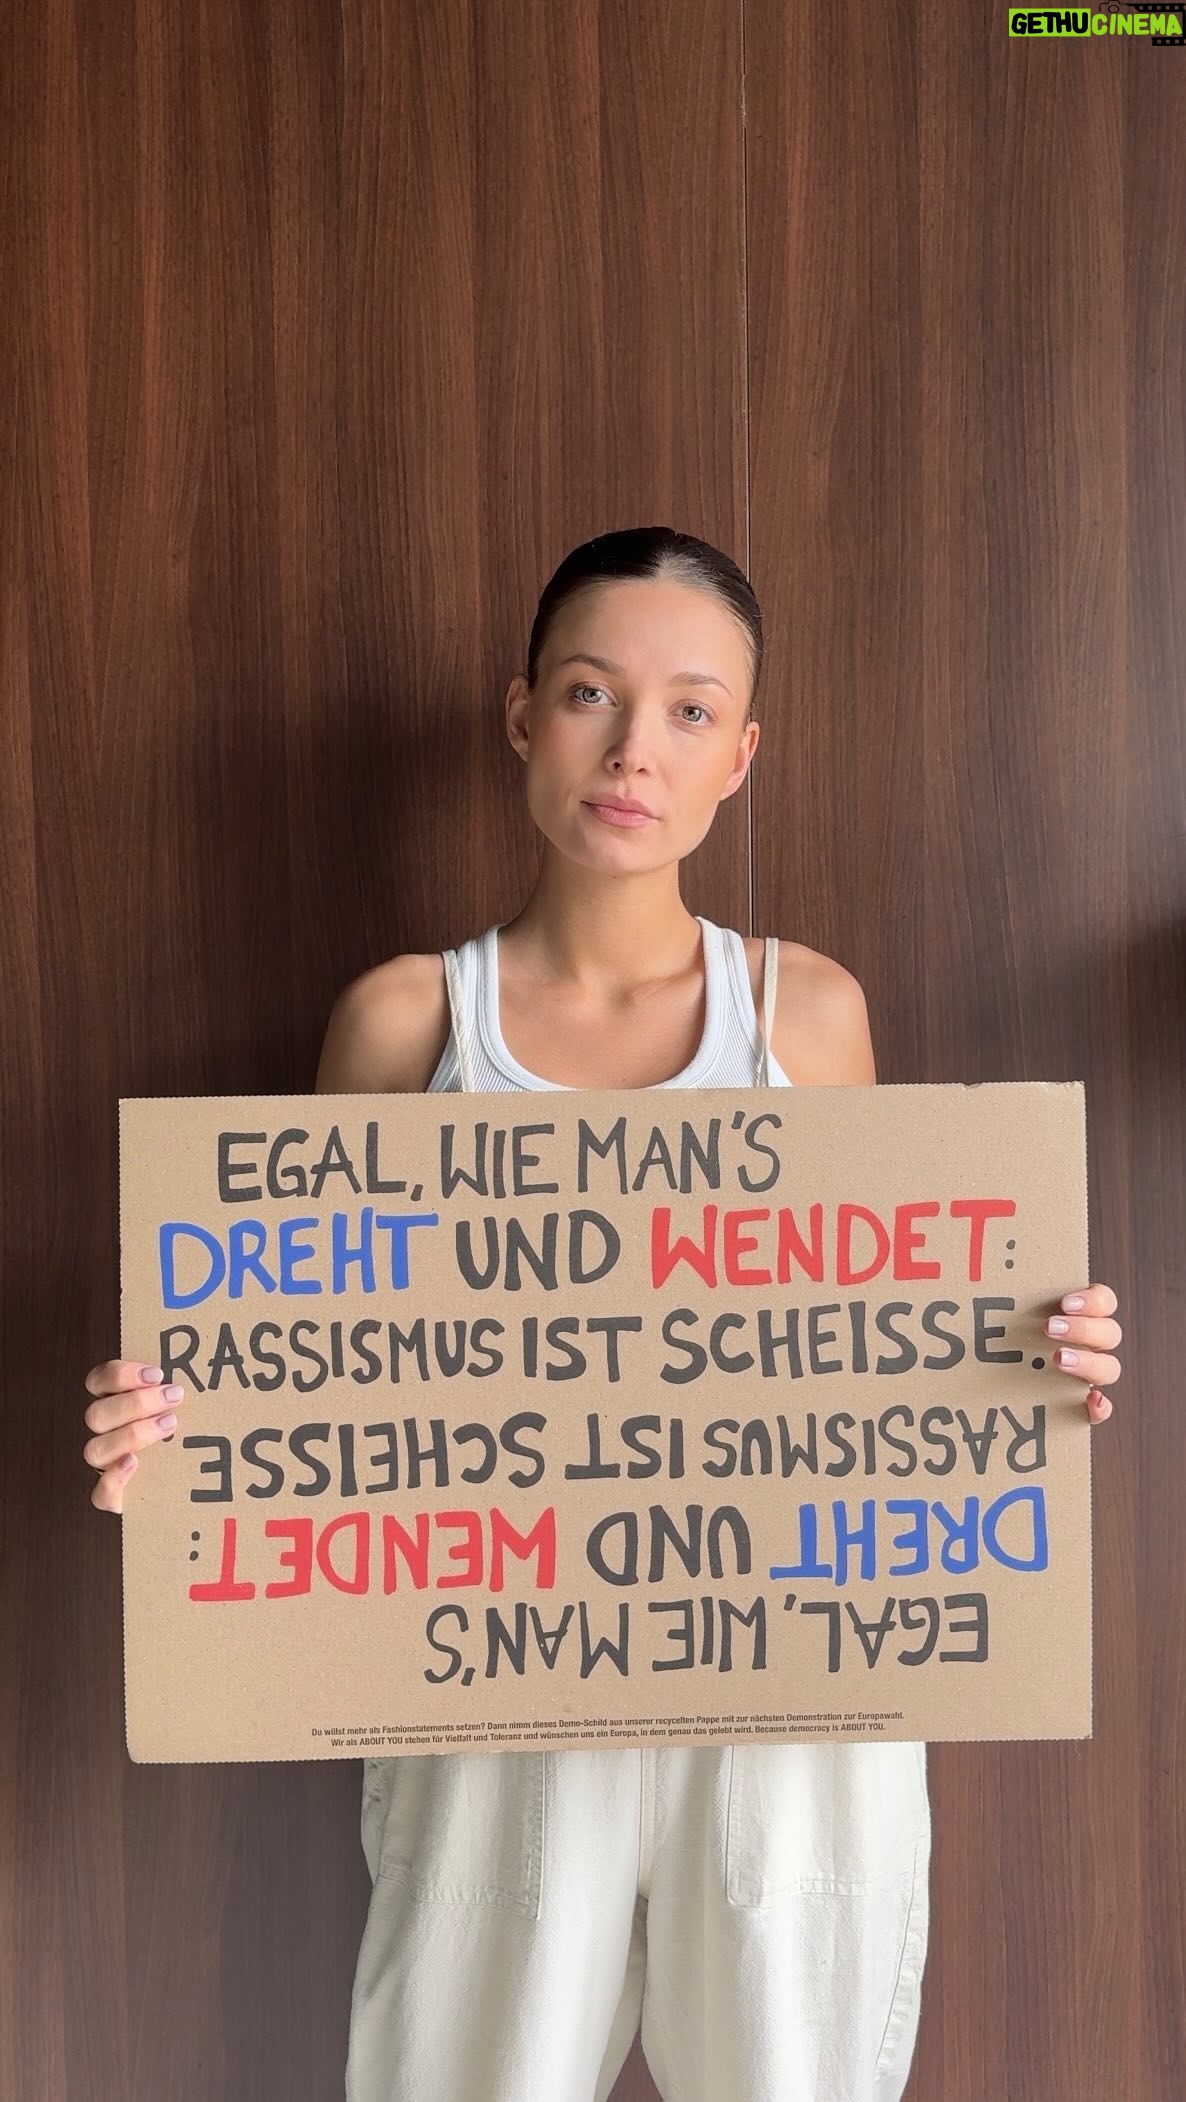 GETHUCINEMA
EGAL, WIE MAN'S
DREHT UND WENDET:
RASSISMUS IST SCHEISSE.
RASSISMUS IST SCHEISSE.
DREHT UND WENDET:
EGAL, WIE MAN'S
Du willst mehr als Fashionstatements setzen? Dann nimm dieses Demo-Schild aus unserer recycelten Pappe mit zur nächsten Demonstration zur Europawahl.
Wir als ABOUT YOU stehen für Vielfalt und Toleranz und wünschen uns ein Europa, in dem genau das gelebt wird. Because democracy is ABOUT YOU.